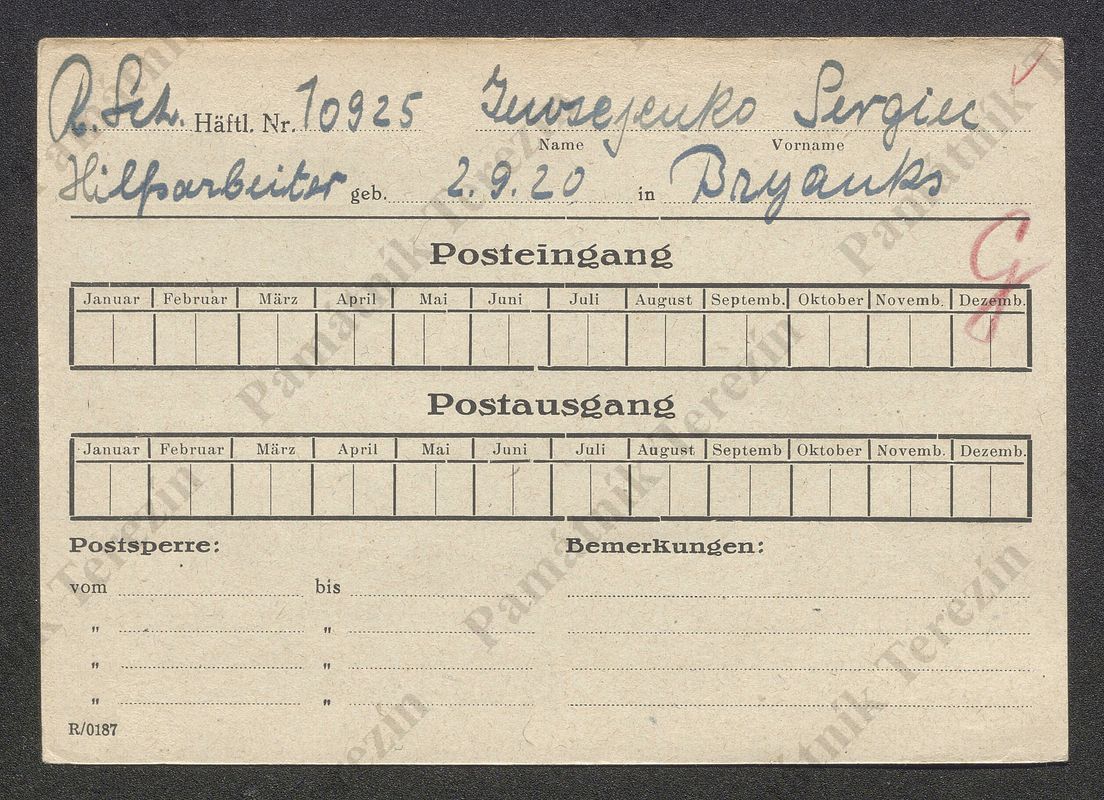 R. Sch. Häftl. Nr. 10925 Sergiec
Name Vorname
Hilfsarbeiter geb. 2.9.20 in Bryansks
G
Posteingang
Januar Februar März April Mai Juni Juli August Septemb. Oktober Novemb. Dezemb.
Postausgang
Januar Februar März April Mai Juni Juli August Septemb Oktober Novemb. Dezemb.
Postsperre: Bemerkungen:
vom bis
" "
" "
" "
R/0187
Památník Terezín